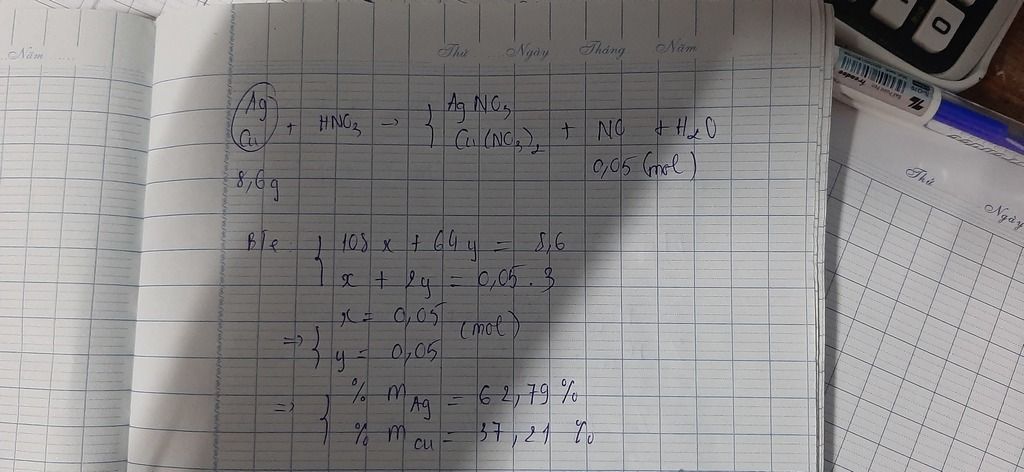 Năm
Thứ Ngày Tháng Năm
Ag
Cu + HNO3 → { AgNO3
Cu(NO3)2 + NO + H2O
8,6g
0,05 (mol)
BTe: { 108x + 64y = 8,6
x + 2y = 0,05 . 3
=> { x = 0,05
y = 0,05 (mol)
=> { % mAg = 62,79 %
% mCu = 37,21 %
Thứ
Ngày
0